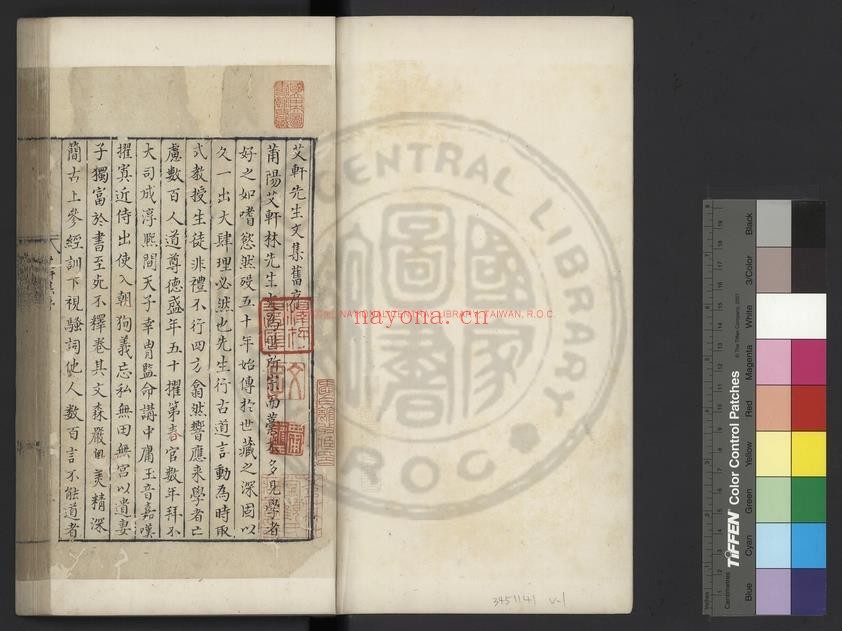 艾軒先生文集舊序
莆陽艾軒林先生 所宗而 多見學者
好之如嗜慾然殁五十年始傳於世藏之深固以
久一出大肆理必然也先生行古道言動為時取
式教授生徒非禮不行四方翕然響應来學者亡
慮數百人道尊德盛年五十擢第春官數年拜不
大司成淳熙間天子幸冑監命講中庸玉音嘉嘆
擢寘近侍出使入朝狥義忘私無田無宮以遺妻
子獨富於書至死不釋卷其文森嚴奥美精深
簡古上參經訓下視騷詞他人數百言不能道者
NATIONAL CENTRAL LIBRARY, TAIWAN, R.O.C.
nayona.cn
CENTRAL LIBRARY
ROC
國家圖書
3451141 v-1
TIFFEN Color Control Patches
© The Tiffen Company, 2007
Centimetres
Inches
Blue
Cyan
Green
Yellow
Red
Magenta
White
3/Color
Black